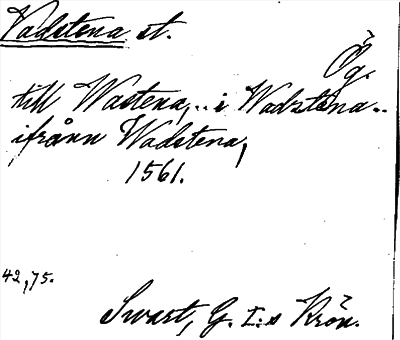 Vadstena st.
Ög.
till Wastena, .. i Wadztena ..
ifrånn Wadstena,
1561.
42,75.
Swart, G. I:s Krön.